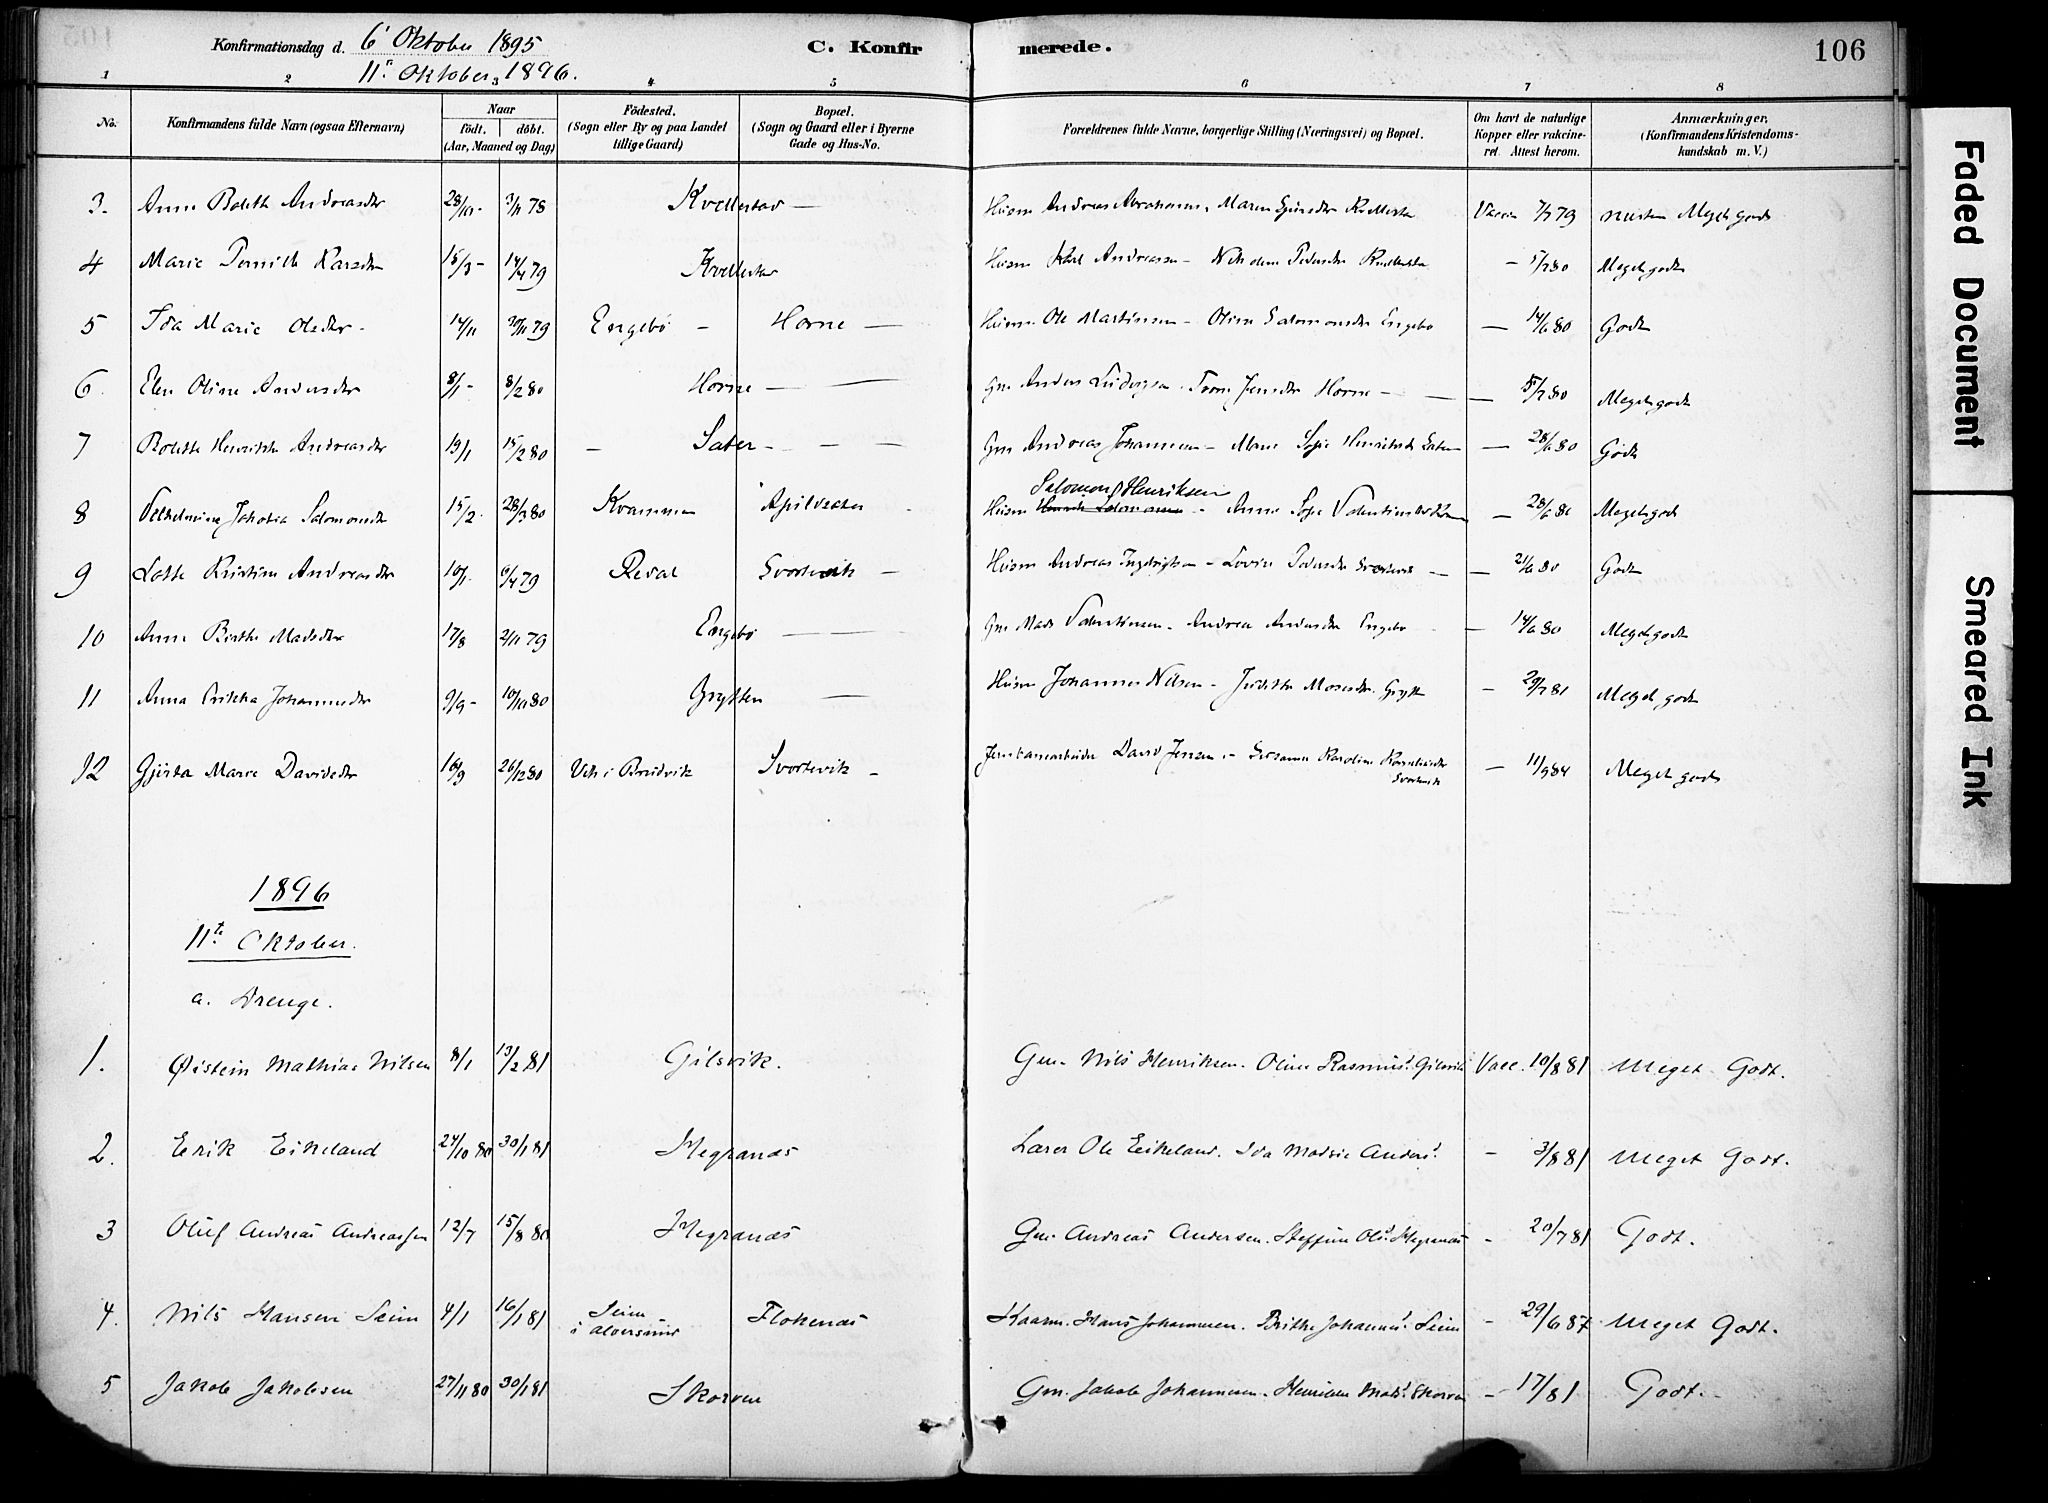 Konfirmationsdag d. 6' Oktober 1895 C. Konfirmerede. 106
11te Oktober 1896.
1 2 3 4 5 6 7 8
No. Konfirmandens fulde Navn (ogsaa Efternavn) Naar födt. döbt. (Aar, Maaned og Dag) Födested. (Sogn eller By og paa Landet tillige Gaard) Bopæl. (Sogn og Gaard eller i Byerne Gade og Hus-No. Forældrenes fulde Navne, borgerlige Stilling (Næringsvei) og Bopæl. Om havt de naturlige Kopper eller vakcineret. Attest herom. Anmærkninger, (Konfirmandens Kristendomskundskab m. V.)
3. Anne Bolette Andreasdtr 28/10- 3/11 78 Kvellestad — Husm Andreas Abrahamsen, Maren Kvellestad Vaccin 7/7 79 næsten Meget godt
4 Marie Pernille Karsdtr 15/3- 14/4 79 Kvellestad Husm Karl Andreassen - Pedersdtr Kvellestad - 5/7 80 Meget godt
5 Ida Marie Olsdtr - 14/11 30/11 79 Engebö - Horne — Husm Ole Martinsen - Oline Salomonsdtr Engebö — 14/6 80 Godt
6. Elen Oline Andersdtr 8/1- 8/2 80 Horne — — Gm Anders Ludvigsen. Jensdtr Horne - — 5/7 80 Meget godt
7 Bolette Henrikke Andreasdtr 19/1 15/2 80 - Sater - — — Gm Andreas Johannesen - Marie Sofie Henriksdtr Sater — 28/6 80 Godt
Salomon Henriksen
8 Vilhelmine Jakobia Salomonsdtr 15/2. 28/3 80 Kvammen Apilsæter Husm Henrik Salomonsen - Anne Sofie Valentinsdtr — 28/6 81 Meget godt
9 Lotte Kristine Andreasdtr 10/1. 6/4 79 Redal Svortevik — Husm Andreas Ingebrigtsen - Lovise Pedersdtr Svortevik — — 21/6 80 Godt
10 Anne Birthe Madsdtr 17/8 2/11 79 Engebö — — Gm Mads Valentinsen - Andrea Andersdtr Engebö — 14/6 80 Meget godt
11 Anna Erikka Johannesdtr 9/9- 10/10 80 Grytten — Husm Johannes Nilsen - Judithe Mosesdtr Grytten - 29/7 81 Meget godt
12 Gjörta Marie Davidsdtr 16/9 26/12 80 Vik i Brudvik Svortevik - David Jensen - Susanne Karoline Svortevik — 11/9 84 Meget godt
1896
11te Oktober.
a. Drenge.
1. Øistein Mathias Nilsen 8/1 13/2 81 Gilsvik. Gm. Nils Henriksen. Oline Rasmusd. Gilsvik Vacc. 10/8 81 Meget Godt.
2. Erik Eikeland 24/10 80 30/1 81 Hegranæs Lærer Ole Eikeland. Ida Madsie Andersd. - 3/8 81 Meget Godt.
3 Oluf Andreas Andreassen 12/7 15/8 80 Hegranæs Gm. Andreas Andersen. Steffine Olsd. Hegranæs - 20/7 81 Godt.
4. Nils Hansen Seim 4/1 16/1 81 Seim i Alversund Flokenæs Kaarm. Hans Johannesen. Brithe Johannesd. Seim - 29/6 87 Meget Godt.
5 Jakob Jakobsen 27/11 80 30/1 81 Skorven Gm. Jakob Johannesen. Madsd. Skorven - 17/81 Godt.
Faded Document
Smeared Ink